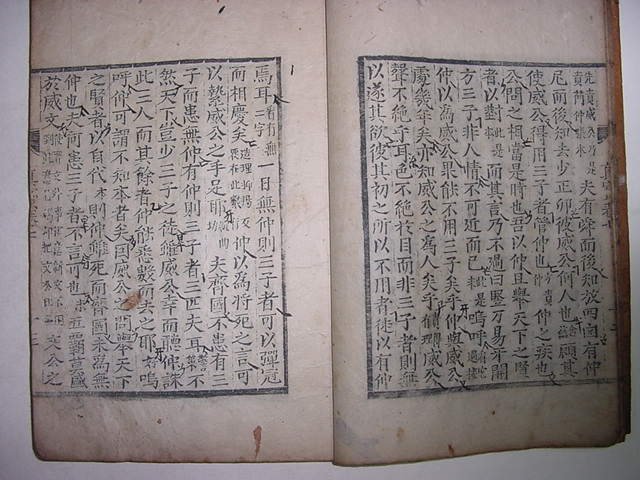 夫有舜而後知放四凶有仲
尼而後知去少正卯彼威公何人也顧其
使威公得用三子者管仲也仲之疾也
公問之相當是時也吾以仲且舉天下之賢
者以對而其言乃不過曰豎刁易牙開
方三子非人情不可近而已嗚呼
仲以為威公果能不用三子矣乎仲與威公
處幾年矣亦知威公之為人矣乎威公
聲不絕乎耳色不絕乎目而非三子者則無
以遂其欲彼其初之所以不用者徒以有仲
焉耳看有無二字一日無仲則三子者可以彈冠
而相慶矣仲以為將死之言可
以縶威公之手足耶夫齊國不患有三
子而患無仲有仲則三子者三匹夫耳不
然天下豈少三子之徒哉雖威公幸而聽仲誅
此三人而其餘者仲能悉數而去之耶嗚
呼仲可謂不知本者矣因威公之問舉天下
之賢者以自代則仲雖死而齊國未為無
仲也夫何患三子者不言可也五霸莫盛
於威文文公之